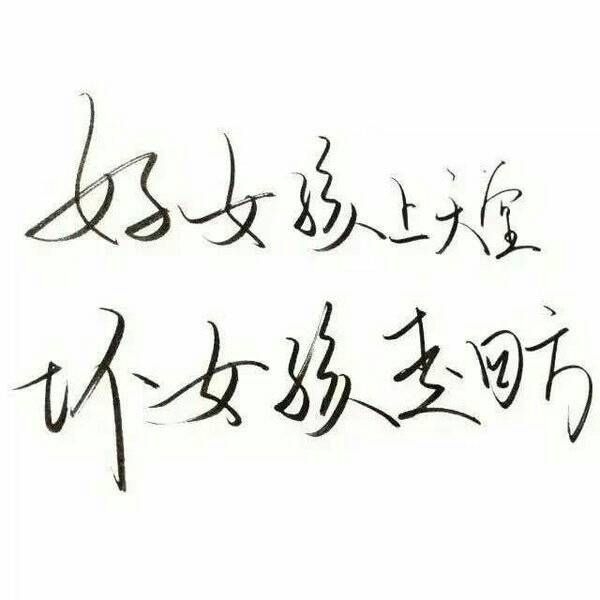 好女孩上天堂
坏女孩走四方